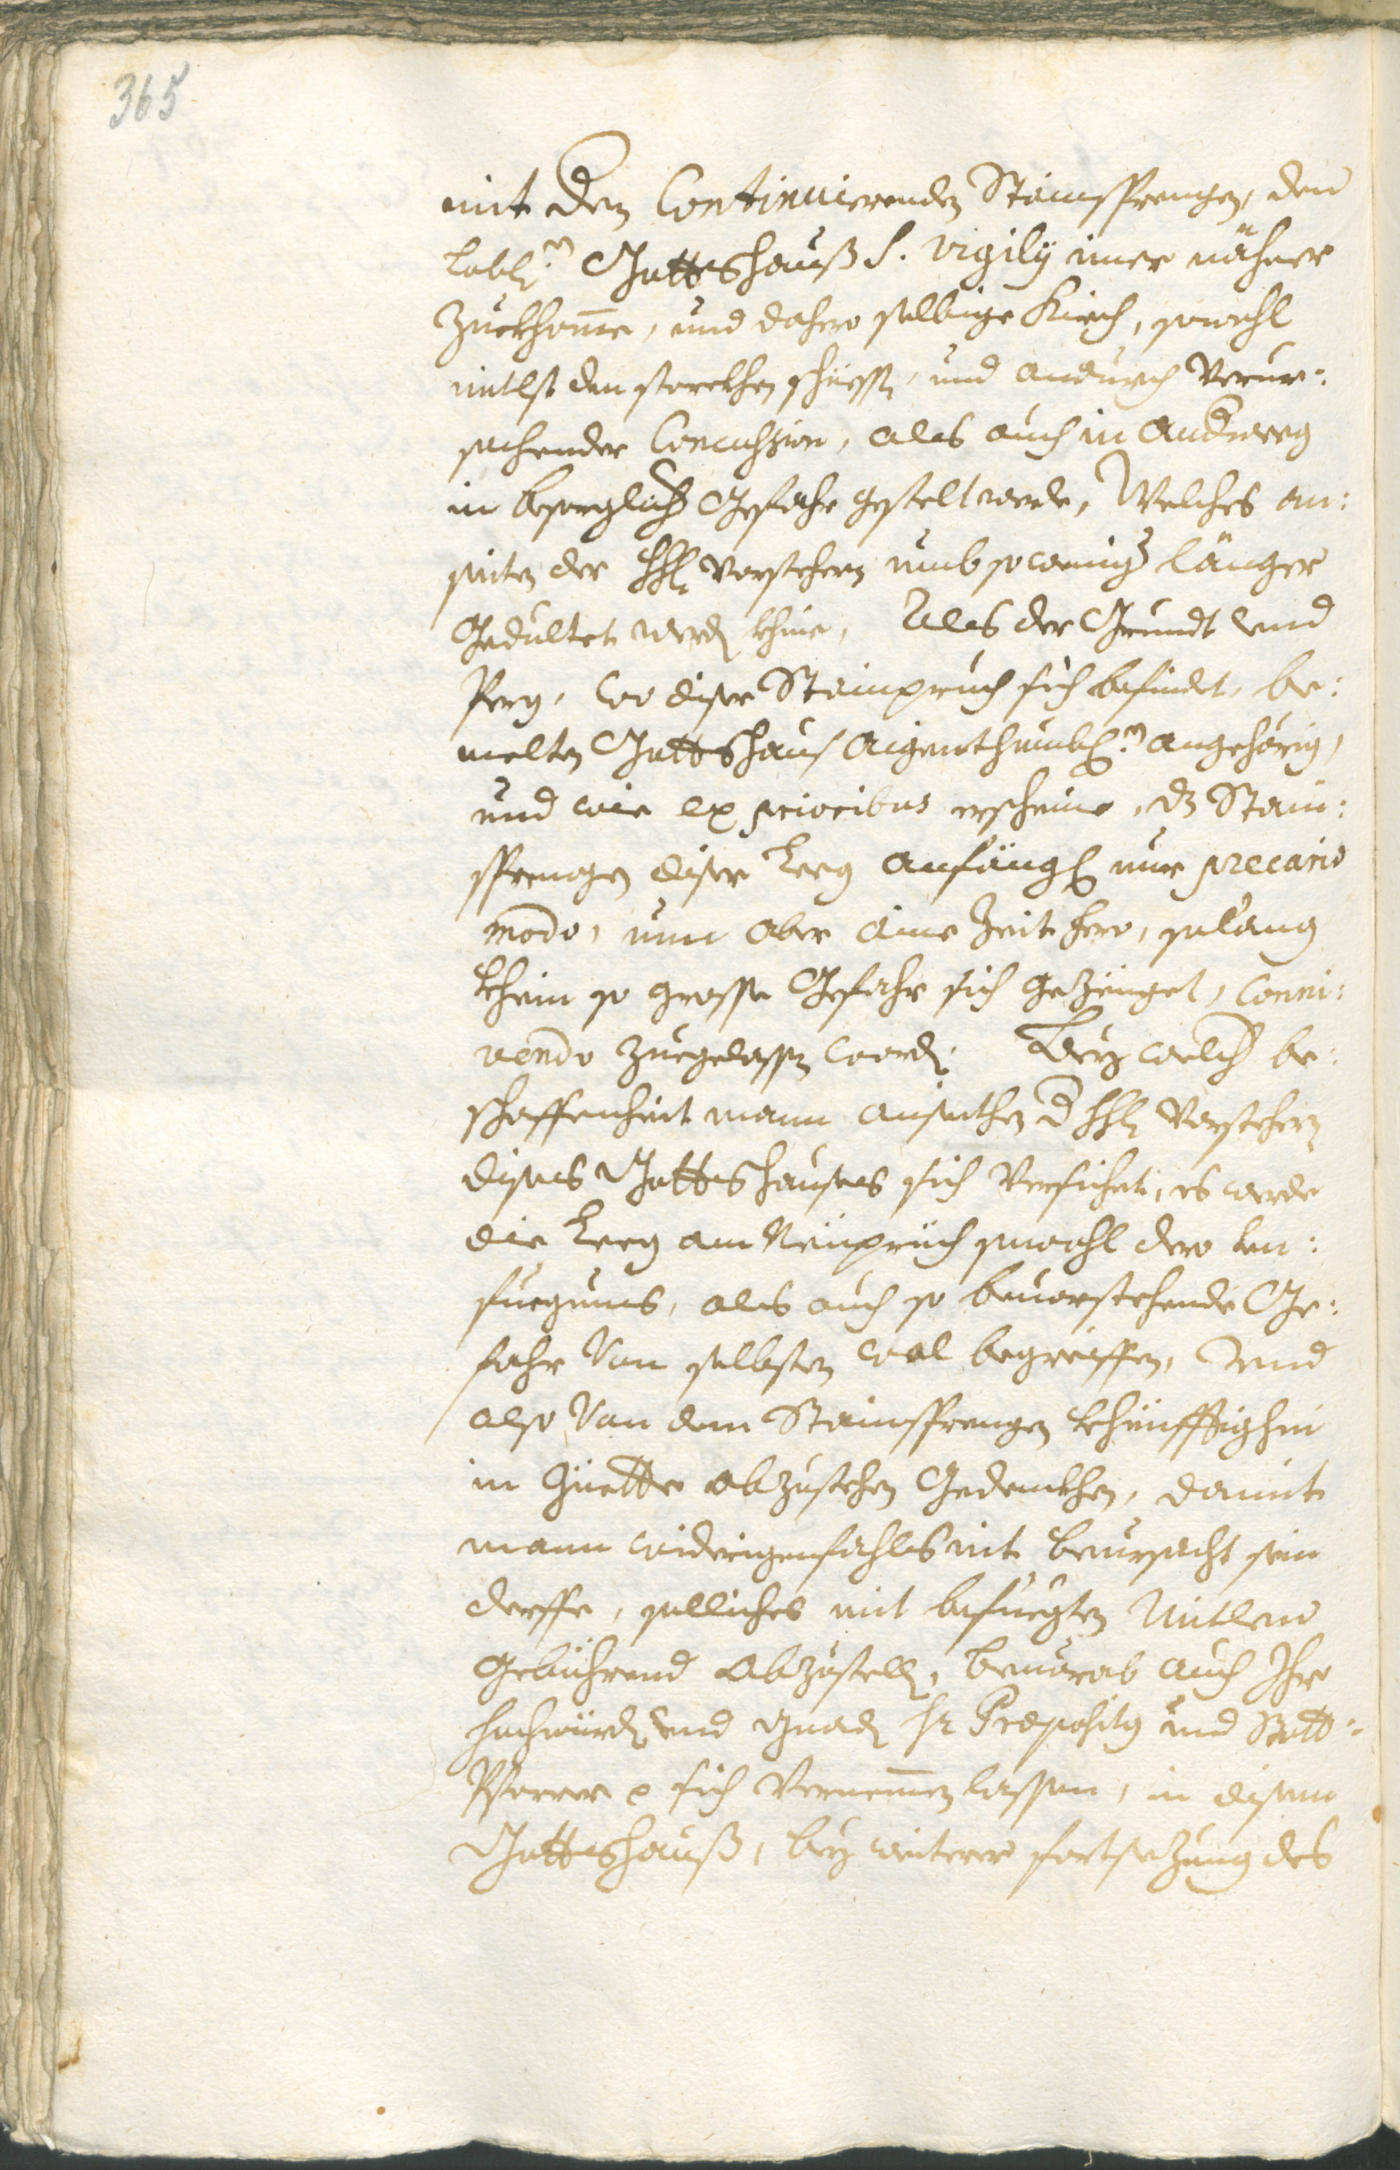 365
mit den Continuierenden Stainsprengen, dem
Lobl:n Gottshauß S. Vigilÿ imer näherr
zuekhome, und dahero selbige Kirch, sowohl
mitlst den storckhen schiessen, und andurch Verur=
sachender Concussion, als auch in anderweg
in besorgliche Gefahr gestelt werde, Welches an:
seiten der HHn Vorstehern umb so weniger länger
Geduldtet werden khine, Als der Grundt und
Perg, wo diser Stainpruch sich befindet, be:
melten Gottshaus aigenthumbl:n angehörig,
und wie ex prioribus erscheine, dz Stain:
sprengen diser Leeg anfängl nur precario
modo, nun aber aine Zeit hero, solang
khein so grosse Gefahr sich gezaiget, conni:
vendo zuegelassen worden. Bey welcher be:
schaffenheit mann anseithen der HHn Vorstehern
dises Gottshauses sich Versichet, es werde
die Leeg am Neüpruch sowohl dero Un:
fuegnus, als auch so beuorstehende Ge:
fahr Von selbsten wol begreiffen, Und
also Von dem Stainsprengen khünfftighin
in Güette abzustehen Gedenckhen, damit
mann widerigenfahls nit beursacht sein
derffe, solliches mit befuegten Mitlen
Gebührend abzustellen, beuorab auch Ihro
Hochwürden und Gnaden Hr Præposity und Statt=
Pfarrer p sich Vernemmen lassen, in disem
Gottshauß, bey weiterer fortsezung des